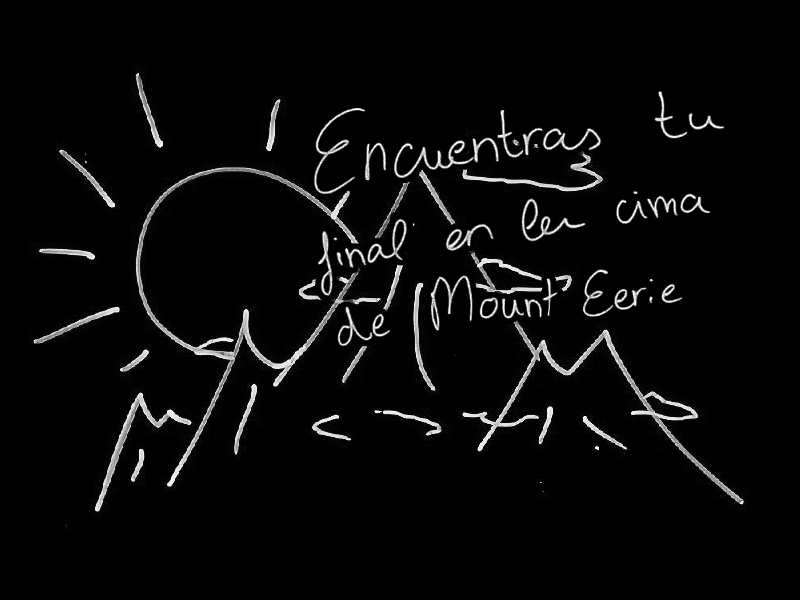 Encuentras tu
final en la cima
de Mount Eerie